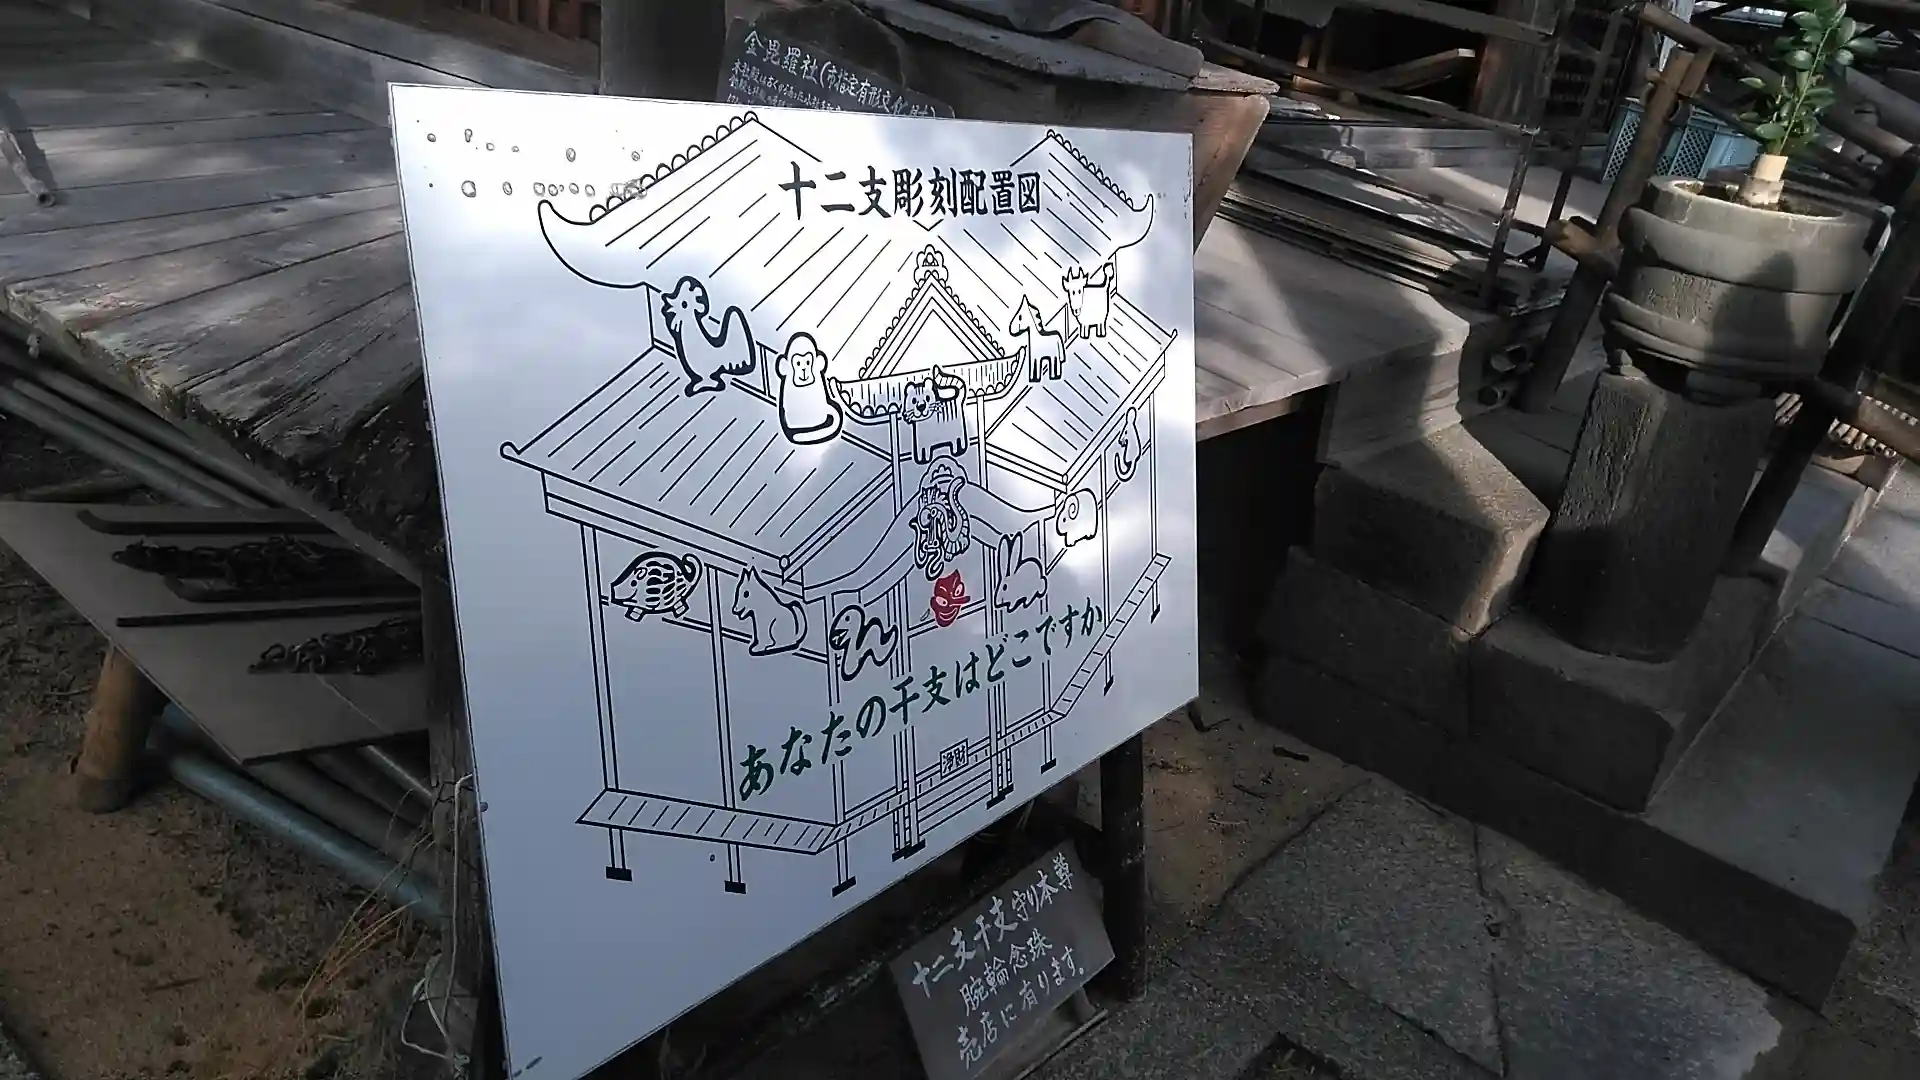 金毘羅社(市指定有形文化財)
十二支彫刻配置図
あなたの干支はどこですか
浄財
十二支干支守り本尊
腕輪念珠
売店に有ります。